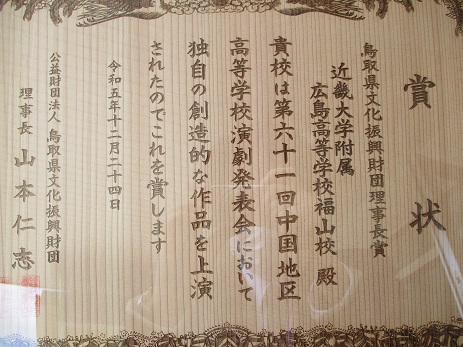 賞状
鳥取県文化振興財団理事長賞
近畿大学附属
広島高等学校福山校 殿
貴校は第六十一回中国地区
高等学校演劇発表会において
独自の創造的な作品を上演
されたのでこれを賞します
令和五年十二月二十四日
公益財団法人 鳥取県文化振興財団
理事長 山本仁志